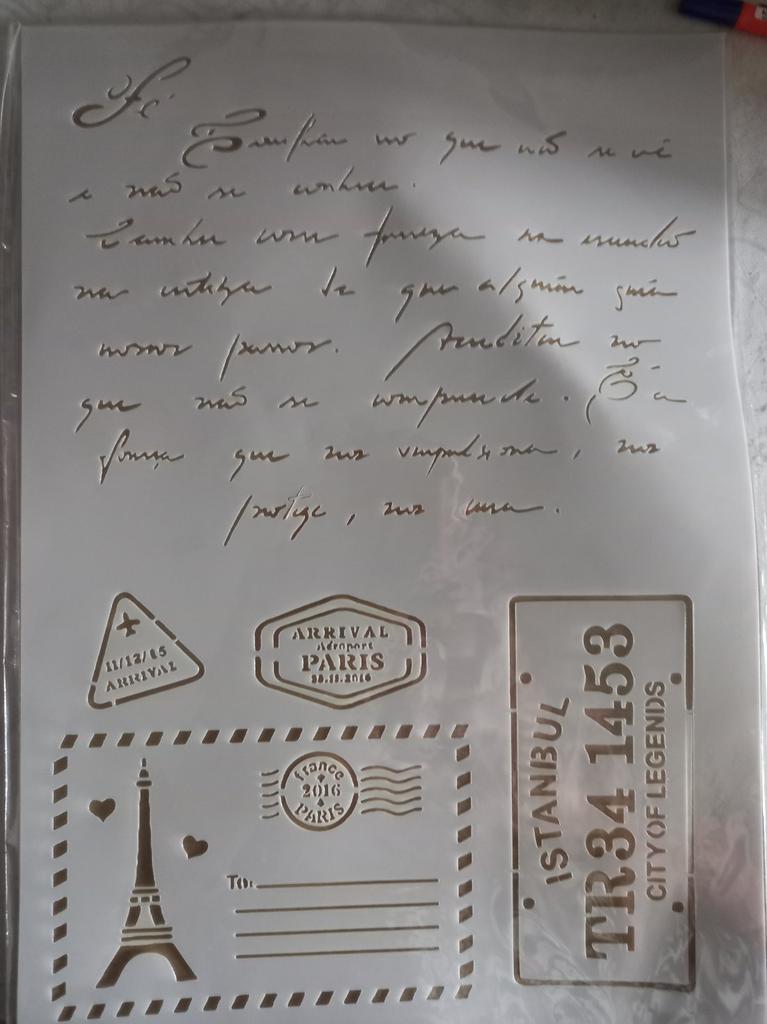 Fé
Confiar no que não se vê
e não se conhece.
Caminhar com firmeza na escuridão
na certeza de que alguém guia
nossos passos. Acreditar no
que não se compreende. É a
força que nos impulsiona, nos
protege, nos cura.
11/12/65
ARRIVAL
ARRIVAL
Aéroport
PARIS
28.11.2016
france
2016
PARIS
To:
ISTANBUL
TR34 1453
CITY OF LEGENDS